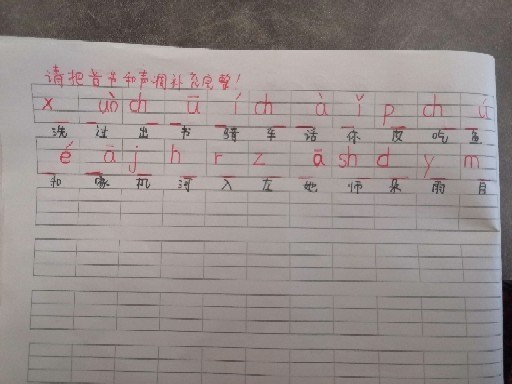 请把音节和声调补充完整!
x uò ch ū í ch à ǐ p ch ú
洗 过 出 书 骑 车 话 你 皮 吃 鱼
é ā j h r z ā sh d y m
和 家 机 河 入 左 她 师 朵 雨 目